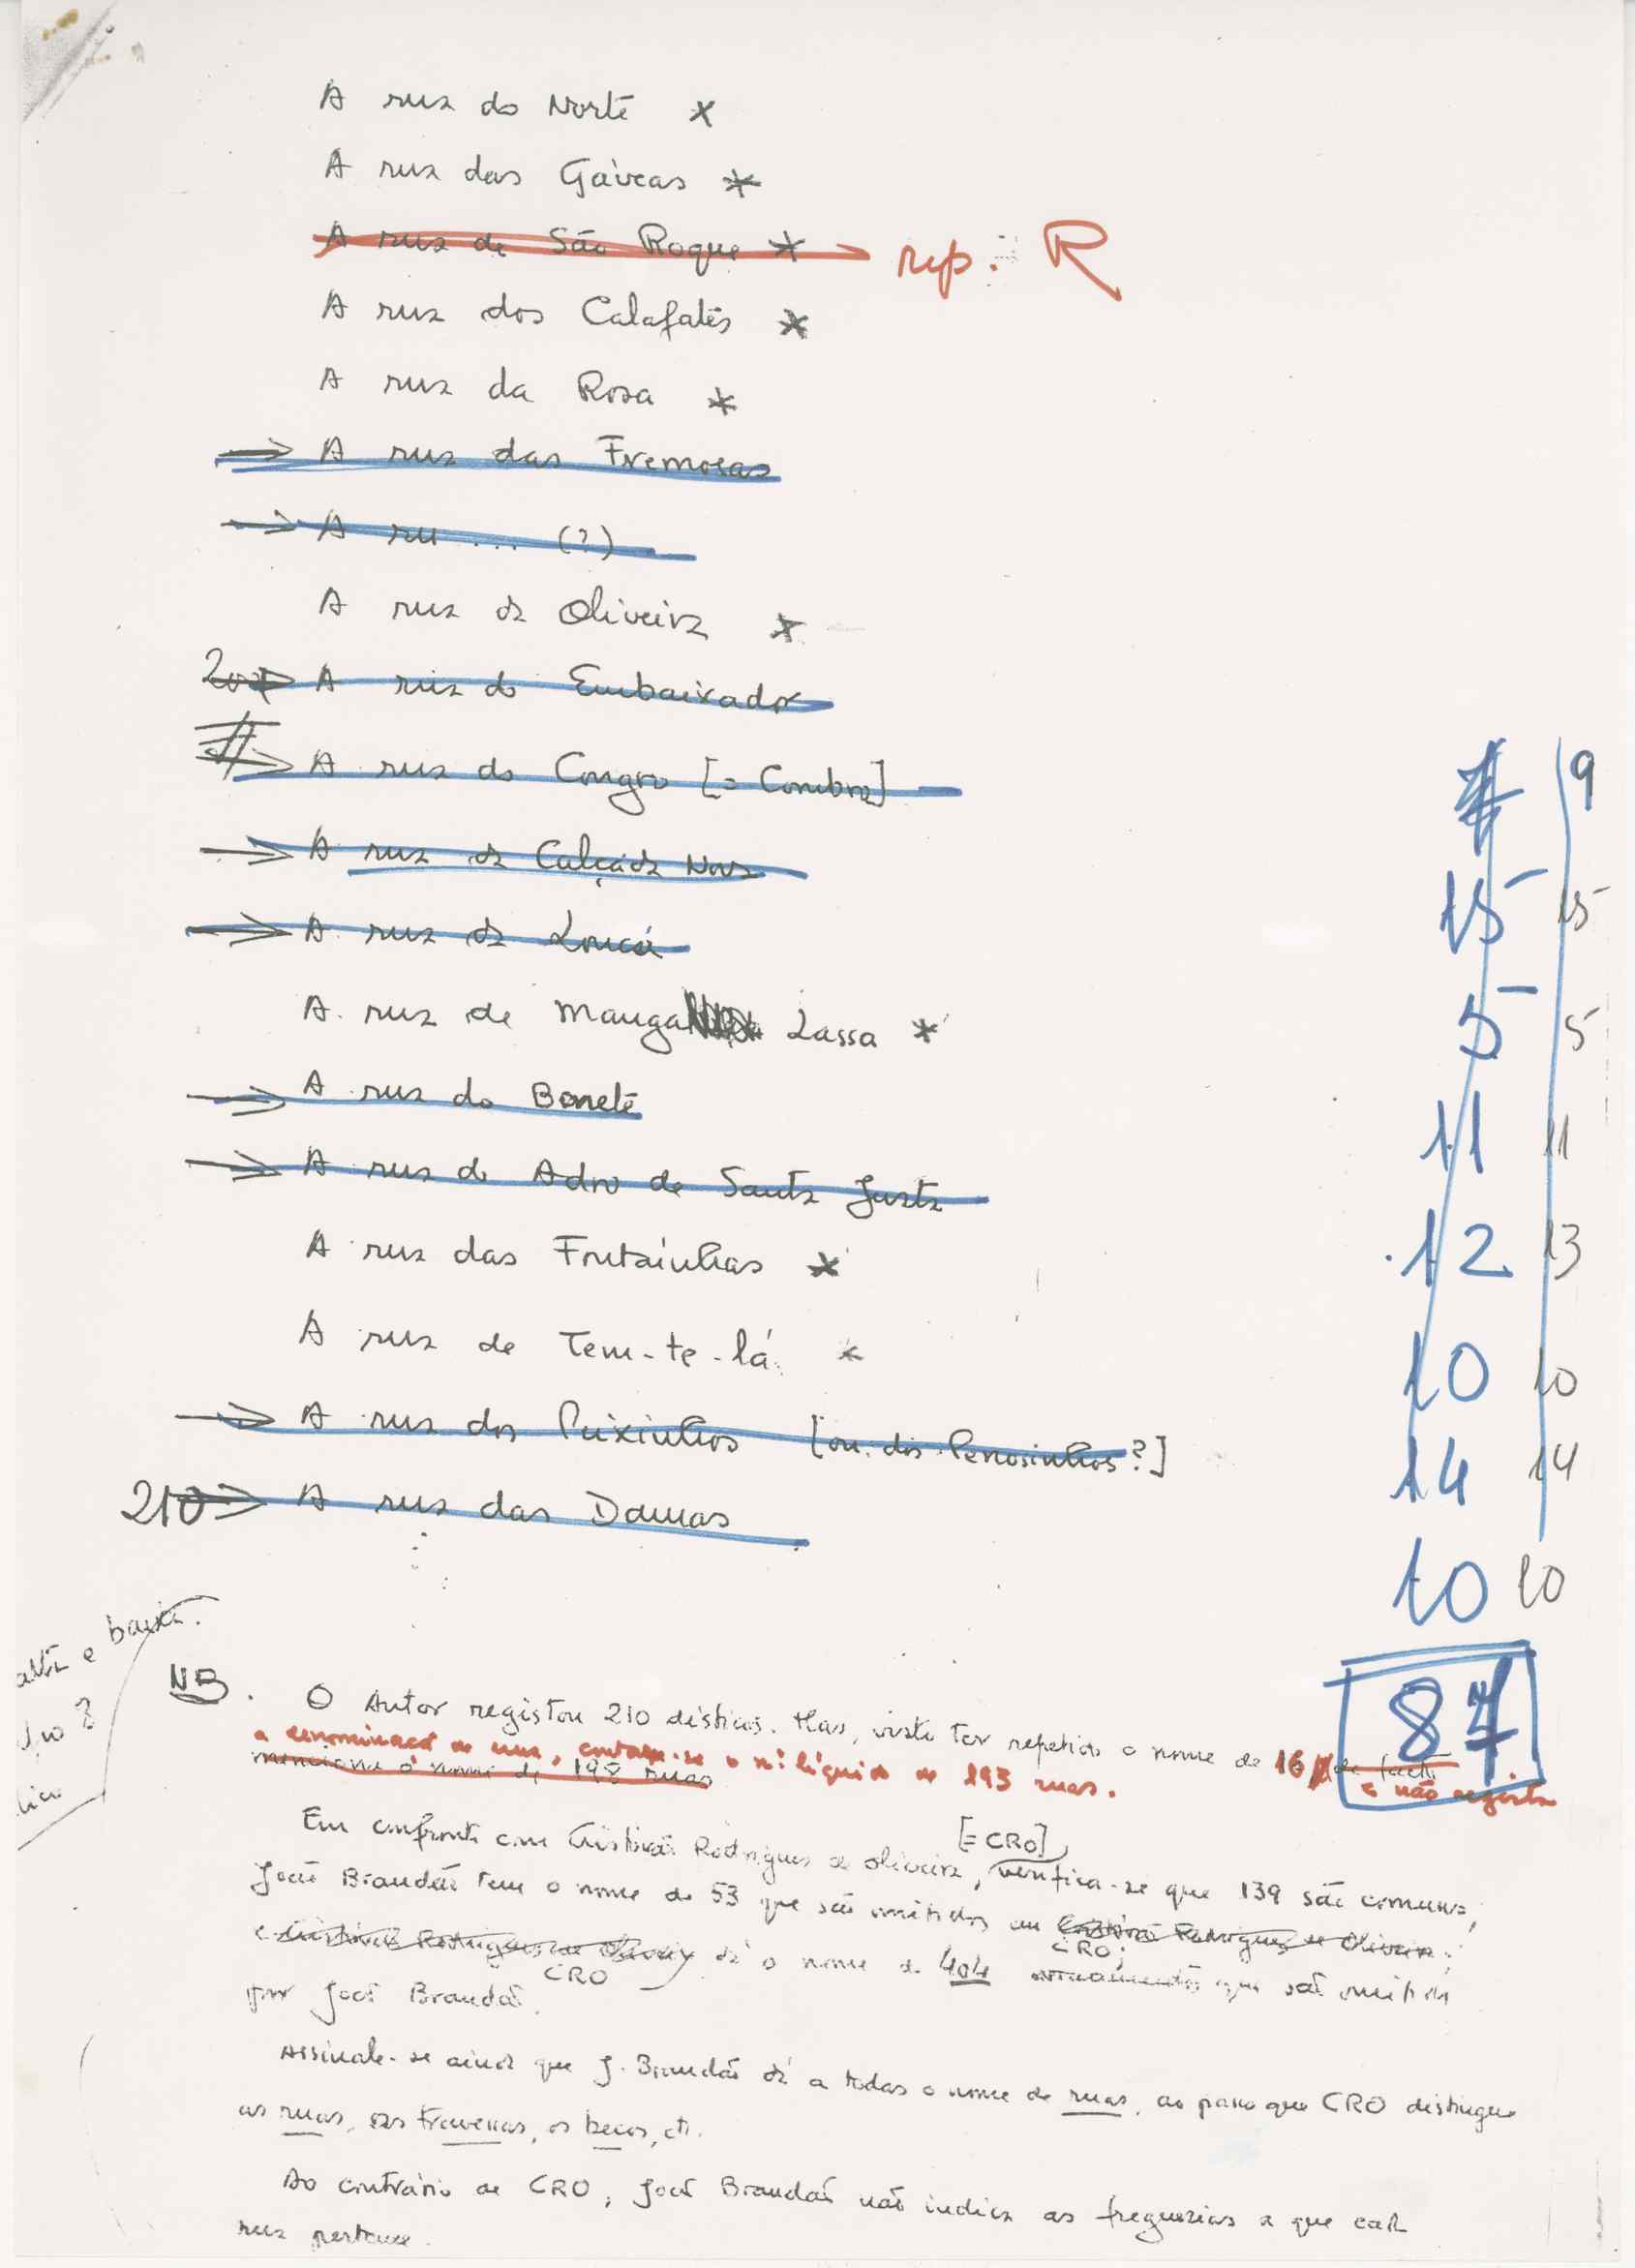 A rua do Norte *
A rua das Gáveas *
A rua de São Roque * rep. R
A rua dos Calafates *
A rua da Rosa *
→ A rua das Fremosas
→ A ru ... (?)
A rua da Oliveira *
→ A rua do Embaixador
→ A rua do Congro [= Combro]
→ A rua da Calçada Nova
→ A rua da Loucá
A rua de Manga Lassa *
→ A rua do Bonete
→ A rua do Adro de Santa Justa
A rua das Frutainhas *
A rua de Tem-te-lá *
→ A rua dos Peixinhos [ou dos Perrosinhos?]
210 → A rua das Damas
9
15 15
5 5
11 11
12 13
10 10
14 14
10 10
87
alta e baixa.
NB. O Autor registou 210 dísticos. Mas, visto ter repetido o nome de 16 de facto
a denominação de uma, contam-se o nº líquido de 193 ruas. e não regista
menciona o nome de 198 ruas
Em confronto com Cristóvão Rodrigues de Oliveira [= CRO], verifica-se que 139 são comuns,
João Brandão tem o nome de 53 que são omitidos em Cristóvão Rodrigues de Oliveira; CRO;
e Cristóvão Rodrigues de Oliveira CRO dá o nome de 404 arruamentos que são omitidos
por João Brandão.
Assinale-se ainda que J. Brandão dá a todas o nome de ruas, ao passo que CRO distingue
as ruas, as travessas, os becos, etc.
Ao contrário de CRO, João Brandão não indica as freguesias a que cada
rua pertence.